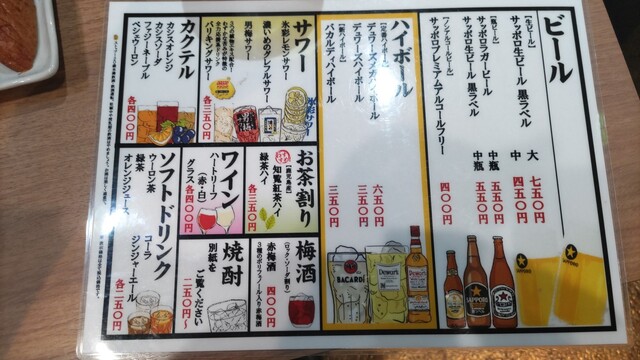 ビール
【生ビール】
サッポロ生ビール 黒ラベル
大 七五〇円
中 四五〇円
【瓶ビール】
サッポロラガービール 中瓶 五五〇円
サッポロ生ビール 黒ラベル 中瓶 五五〇円
【ノンアルコールビール】
サッポロプレミアムアルコールフリー 四〇〇円
SAPPORO
ハイボール
【定番ハイボール】
デュワーズメガハイボール 六五〇円
デュワーズハイボール 三五〇円
【新ハイボール】
バカルディハイボール 三五〇円
BACARDI
Dewar's
サワー
氷彩レモンサワー
濃いめのグレフルサワー
男梅サワー
バリキングサワー
各三五〇円
氷彩サワー
カクテル
カシスオレンジ
カシスソーダ
ファジーネーブル
ペシェウーロン
各四〇〇円
お茶割り
【鹿児島産】
知覧紅茶ハイ
緑茶ハイ
各三五〇円
ワイン
ハートリーフ
(赤・白)
グラス 各四〇〇円
ソフトドリンク
ウーロン茶
緑茶
オレンジジュース
コーラ
ジンジャーエール
各二五〇円
梅酒
(ロック・ソーダ割り)
赤梅酒 四〇〇円
3種のポリフェノール入り赤梅酒
焼酎
別紙を
ご覧ください
二五〇円～